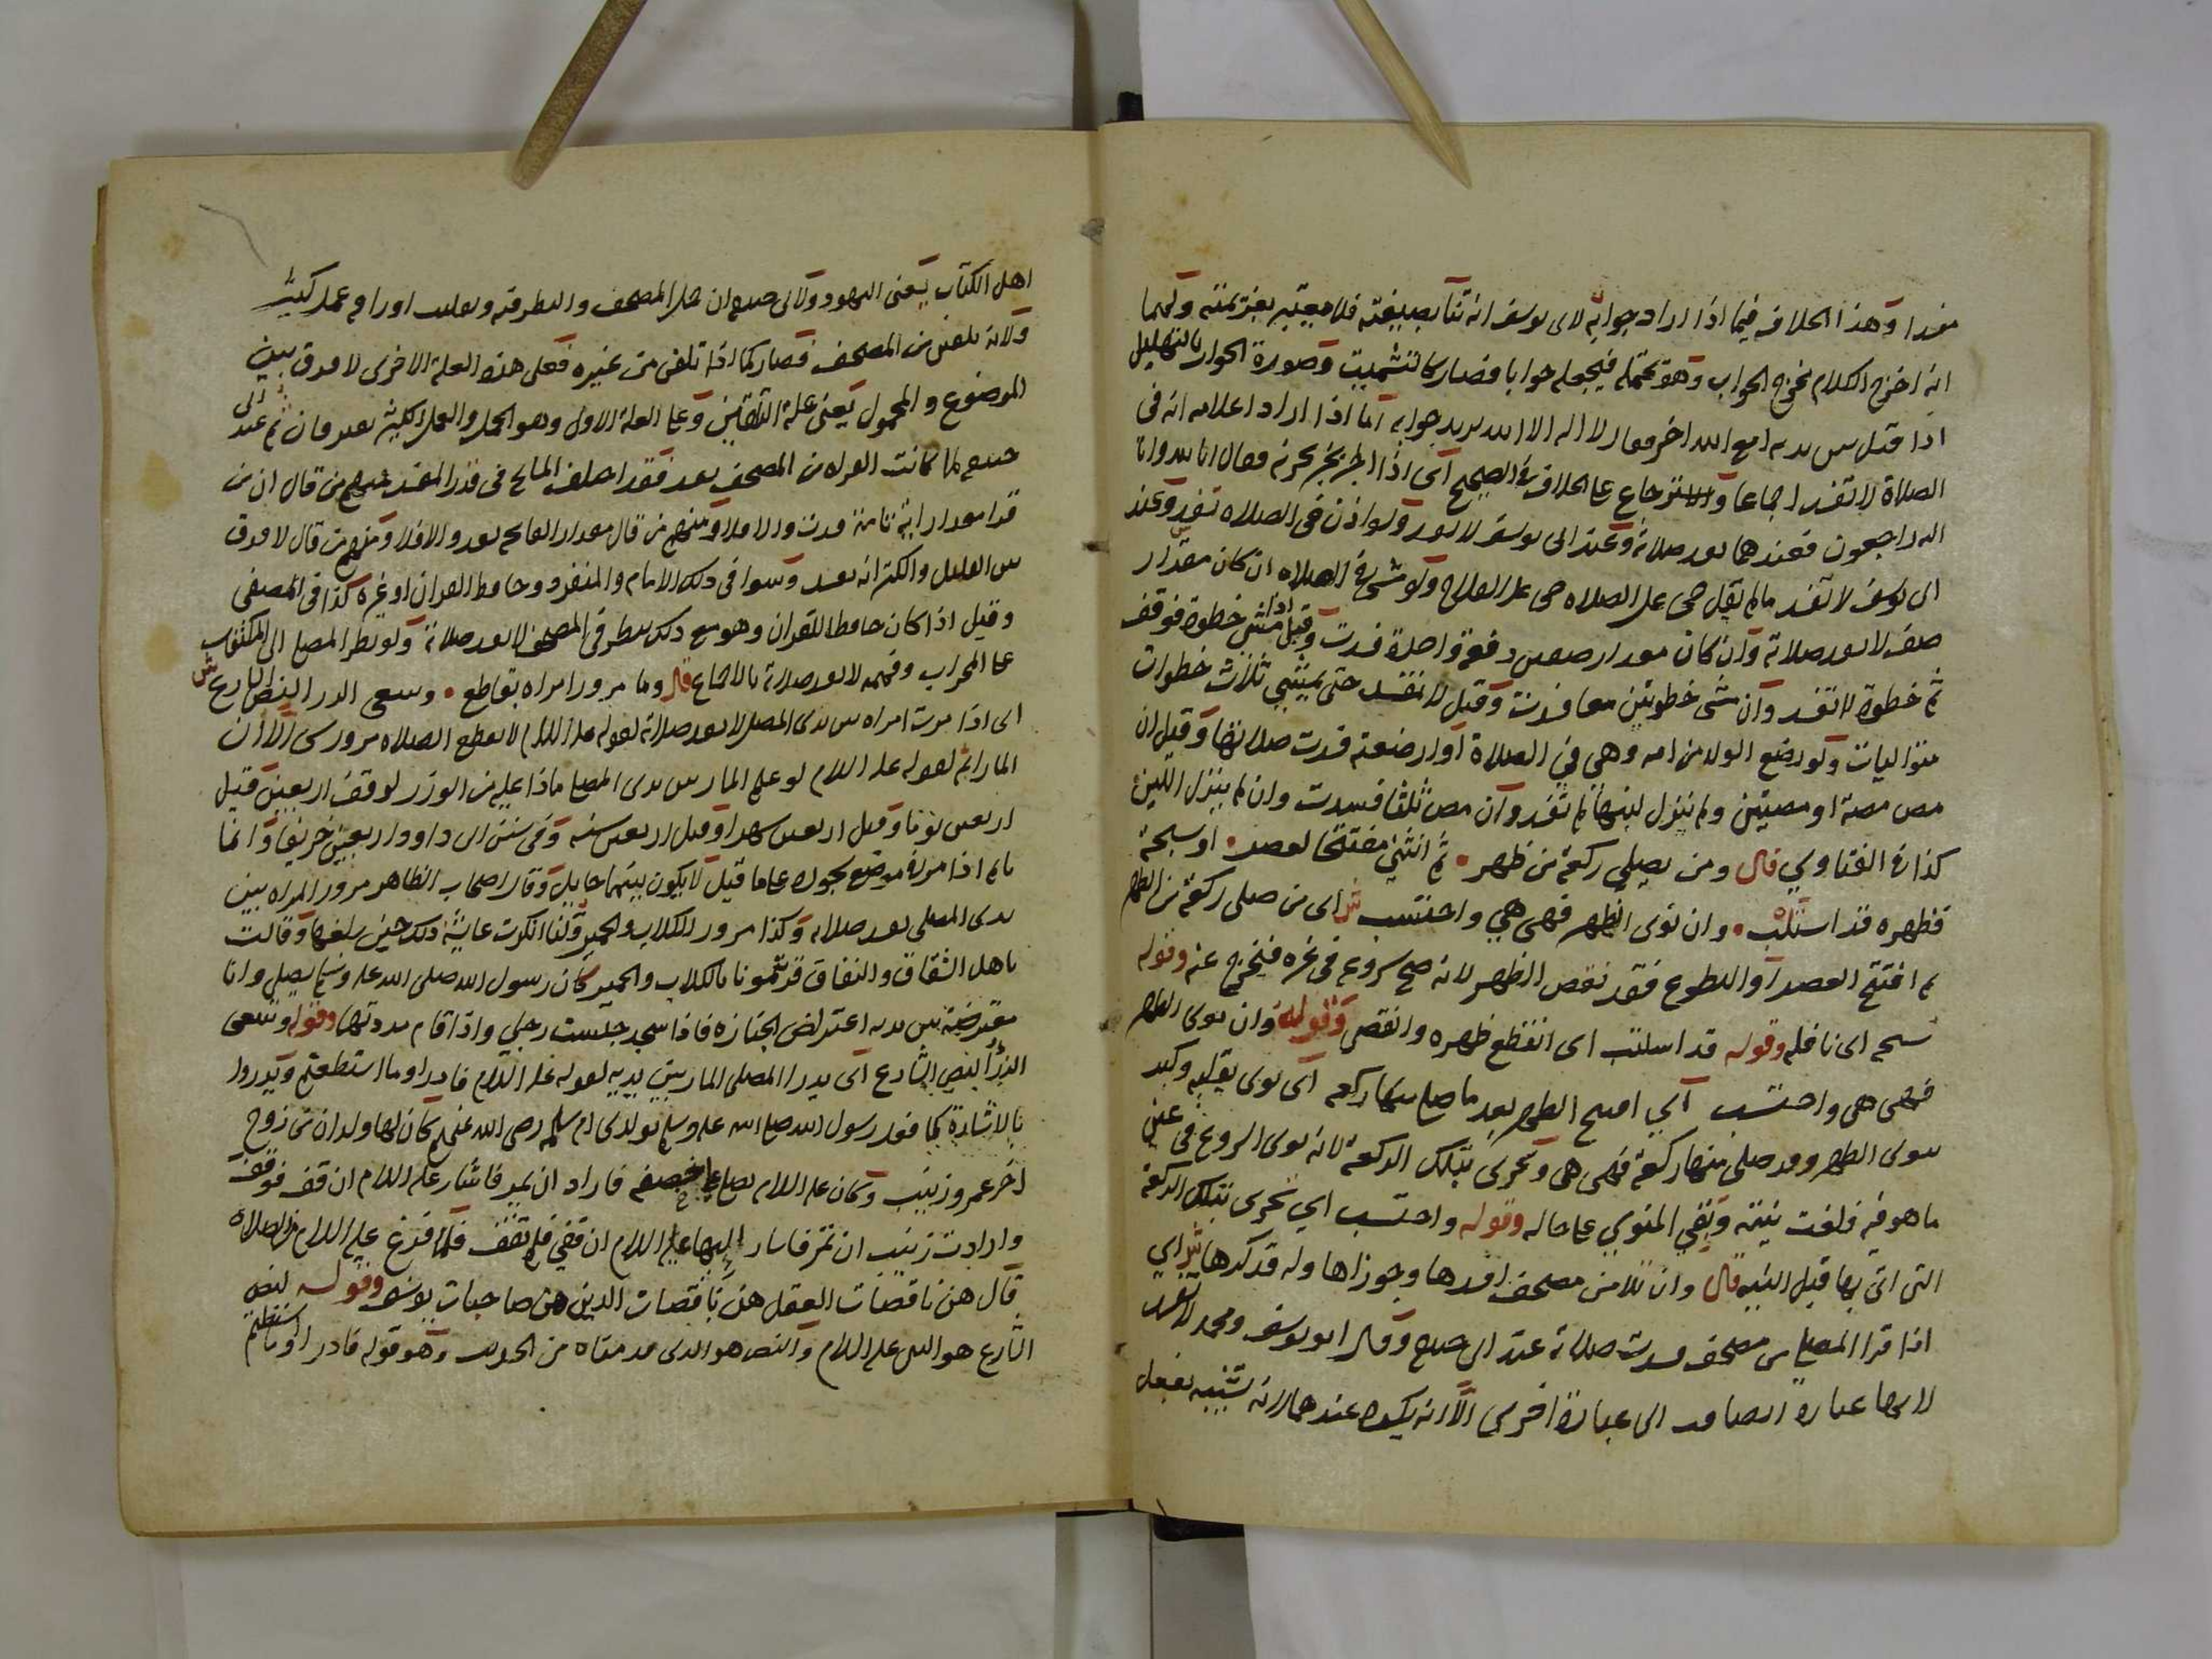 وهذا الخلاف فيما اذا اراد جوابه لابى يوسف انه ثنآ بصيغته فلا يتغير بعزيمته ولهما
انه اخرج الكلام مخرج الجواب وهو يحتمله فيجعل جوابا فصار كالتشميت وصورة الجواب بالتهليل
اذا قيل بين يديه امع الله اخر فقال لا اله الا الله يريد جوابه اما اذا اراد اعلامه انه فى
الصلاة لا تفسد اجماعا والاسترجاع على الخلاف فى الصحيح اى اذا اخبر بخبر يحزنه فقال انا لله وانا
اليه راجعون فعندهما تفسد صلاته وعند ابى يوسف لا تفسد ولو اذن فى الصلاه تفسد وعند
ابى يوسف لا تفسد مالم يقل حى على الصلاه حى على الفلاح ولو مشى فى الصلاه ان كان مقدار
صف لا تفسد صلاته وان كان مقدار صفين دفعة واحدة فسدت وقيل اذا مشى خطوة فوقف
ثم خطوة لا تفسد وان مشى خطوتين معا فسدت وقيل لا تفسد حتى يمشي ثلاث خطوات
متواليات ولو رضع الولد من امه وهي في الصلاة او ارضعته فسدت صلاتها وقيل ان
مص مصة او مصتين ولم ينزل لبنها لم تفسد وان مص ثلثا فسدت وان لم ينزل اللبن
كذا فى الفتاوي قال ومن يصلي ركعة من ظهر • ثم انثنى مفتتحا لعصر • او سبحة
فظهره قد استلب • وان نوى الظهر فهى هي واحتسب ش اى من صلى ركعة من الظهر
ثم افتتح العصر او التطوع فقد نقض الظهر لانه صح شروعه فى غيره فيخرج عنه وقوله
سبحة اى نافلة وقوله قد استلب اى انقطع ظهره وانتقض وقوله وان نوى الظهر
فهى هى واحتسب اي افتتح الظهر بعد ما صلى منها ركعه اى نوى بقلبه وكبر
ينوى الظهر وقد صلى منها ركعة فهى هى وتجزى بتلك الركعة لانه نوى الشروع فى عين
ما هو فيه فلغت نيته وبقي المنوي على حاله وقوله واحتسب اي تجزى بتلك الركعة
التى اتى بها قبل النيه قال وان تلا من مصحف افسدها وجوزاها وله قد كرها ش اي
اذا قرا المصلى من مصحف فسدت صلاته عند ابى حنيفة وقال ابو يوسف ومحمد لا تفسد
لانها عبادة انضافت الى عبادة اخرى الا انه يكره عندهما لانه تشبيه بفعل
اهل الكتاب يعنى اليهود ولابى حنيفه ان حمل المصحف والنظر فيه وتقليب اوراقه عمل كثير
ولانه تلقن من المصحف فصار كما اذا تلقن من غيره فعلى هذه العلة الاخرى لا فرق بين
الموضوع والمحمول يعنى علة التلقين وعلى العلة الاولى وهو الحمل والعمل الكثير يفترقان ثم عند ابى
حنيفه لما كانت القراه من المصحف تفسد فقد اختلف المشايخ فى قدر المفسد فمنهم من قال ان من
قرا مقدار اية تامة فسدت والا فلا ومنهم من قال مقدار الفاتحه تفسد والا فلا ومنهم من قال لا فرق
بين القليل والكثير انه تفسد وسوا فى ذلك الامام والمنفرد وحافظ القران او غيره كذا فى المصفى
وقيل اذا كان حافظا للقران وهو مع ذلك ينظر فى المصحف لا تفسد صلاته ولو نظر المصلى الى المكتوب
على المحراب وفهمه لا تفسد صلاته بالاجماع قال وما مرور امراه بقاطع • ويسعى الدرا لنص الشارع ش
اى اذا مرت امراه بين يدى المصلى لا تفسد صلاته لقوله عليه السلام لا يقطع الصلاه مرور شى الا ان
المار اثم لقوله عليه السلام لو علم المار بين يدى المصلى ماذا عليه من الوزر لوقف اربعين قيل
اربعين يوما وقيل اربعين شهرا وقيل اربعين سنه وفى سنن ابى داوود اربعين خريفا وانما
ياثم اذا مر فى موضع سجوده على ما قيل لا يكون بينهما حايل وقال اصحاب الظاهر مرور المراه بين
يدى المصلى تفسد صلاته وكذا مرور الكلاب والحمير ولنا انكرت عايشة ذلك حين بلغها وقالت
يا اهل الشقاق والنفاق قرنتمونا بالكلاب والحمير كان رسول الله صلى الله عليه وسلم يصلي وانا
معترضة بين يديه اعتراض الجنازه فاذا سجد جلست رجلي واذا قام مددتها وقوله ويسعى
الدرا لنص الشارع اى يدرا المصلى المار بين يديه لقوله عليه السلام فادراوا ما استطعتم ويدروا
بالاشارة كما فعل رسول الله صلى الله عليه وسلم بولدى ام سلمه رضى الله عنها كان لها ولدان من زوج
اخر عمر وزينب وكان عليه السلام يصلى فاراد ان يمر فاشار عليه السلام ان قف فوقف
وارادت زينب ان تمر فاشار اليها عليه السلام ان قفي فلم تقف فلما فرغ عليه السلام من الصلاة
قال هن ناقصات العقل هن ناقصات الدين هن صاحبات يوسف وقوله لنص
الشارع هو النبى عليه السلام والنص هو الذى قدمناه من الحديث وهو قوله فادراوا ما استطعتم